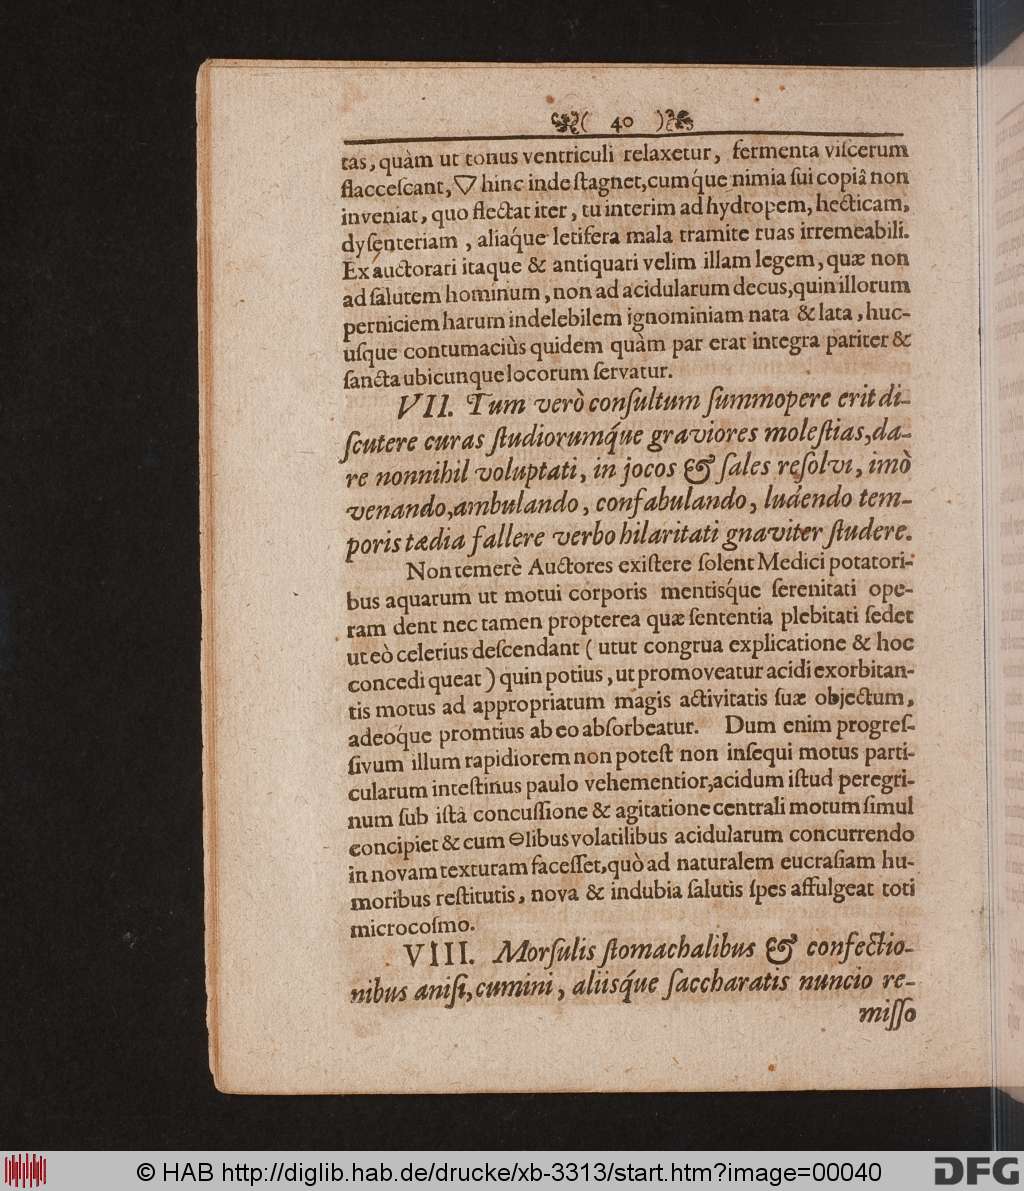 ( 40 )
tas, quàm ut tonus ventriculi relaxetur, fermenta viſcerum
flacceſcant, 🜄 hinc inde ſtagnet, cumq́ue nimia ſui copiâ non
inveniat, quo flectat iter, tu interim ad hydropem, hecticam,
dyſenteriam, aliaq́ue letifera mala tramite ruas irremeabili.
Exauctorari itaque & antiquari velim illam legem, quæ non
ad ſalutem hominum, non ad acidularum decus, quin illorum
perniciem harum indelebilem ignominiam nata & lata, huc-
uſque contumaciùs quidem quàm par erat integra pariter &
ſancta ubicunque locorum ſervatur.
VII. Tum verò conſultum ſummopere erit di-
ſcutere curas ſtudiorumq́ue graviores moleſtias, da-
re nonnihil voluptati, in jocos & ſales reſolvi, imò
venando, ambulando, confabulando, ludendo tem-
poris tædia fallere verbo hilaritati gnaviter ſtudere.
Non temerè Auctores exiſtere ſolent Medici potatori-
bus aquarum ut motui corporis mentisq́ue ſerenitati ope-
ram dent nec tamen propterea quæ ſententia plebitati ſedet
ut eò celerius deſcendant ( utut congrua explicatione & hoc
concedi queat ) quin potius, ut promoveatur acidi exorbitan-
tis motus ad appropriatum magis activitatis ſuæ objectum,
adeoq́ue promtius ab eo abſorbeatur. Dum enim progreſ-
ſivum illum rapidiorem non poteſt non inſequi motus parti-
cularum inteſtinus paulo vehementior, acidum iſtud peregri-
num ſub iſtâ concuſſione & agitatione centrali motum ſimul
concipiet & cum ⊖libus volatilibus acidularum concurrendo
in novam texturam faceſſet, quò ad naturalem eucraſiam hu-
moribus reſtitutis, nova & indubia ſalutis ſpes affulgeat toti
microcoſmo.
VIII. Morſulis ſtomachalibus & confectio-
nibus aniſi, cumini, aliisq́ue ſaccharatis nuncio re-
miſſo
© HAB http://diglib.hab.de/drucke/xb-3313/start.htm?image=00040
DFG